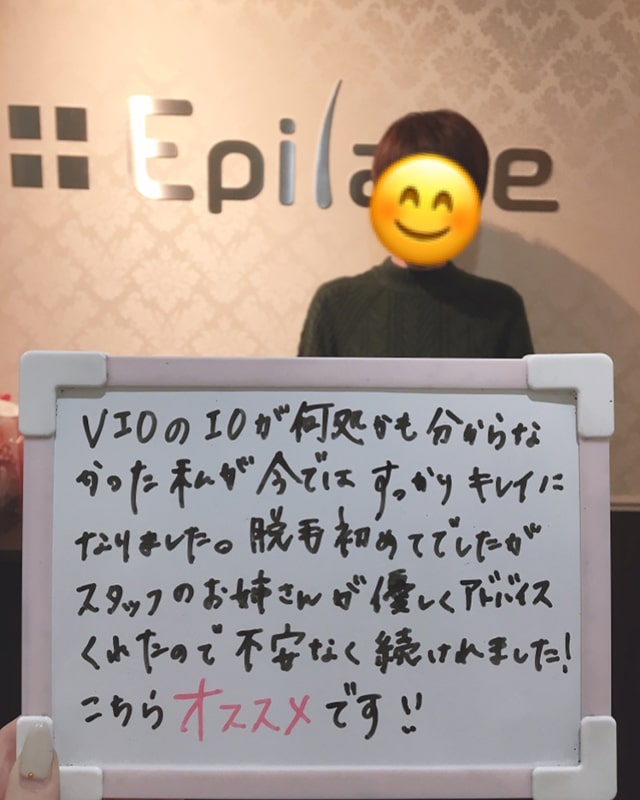 Epila
e
VIOのIOが何処かも分からな
かった私が今では すっかりキレイに
なりました。脱毛初めてでしたが
スタッフのお姉さんが優しくアドバイス
くれたので不安なく続けれました!
こちらオススメです!!